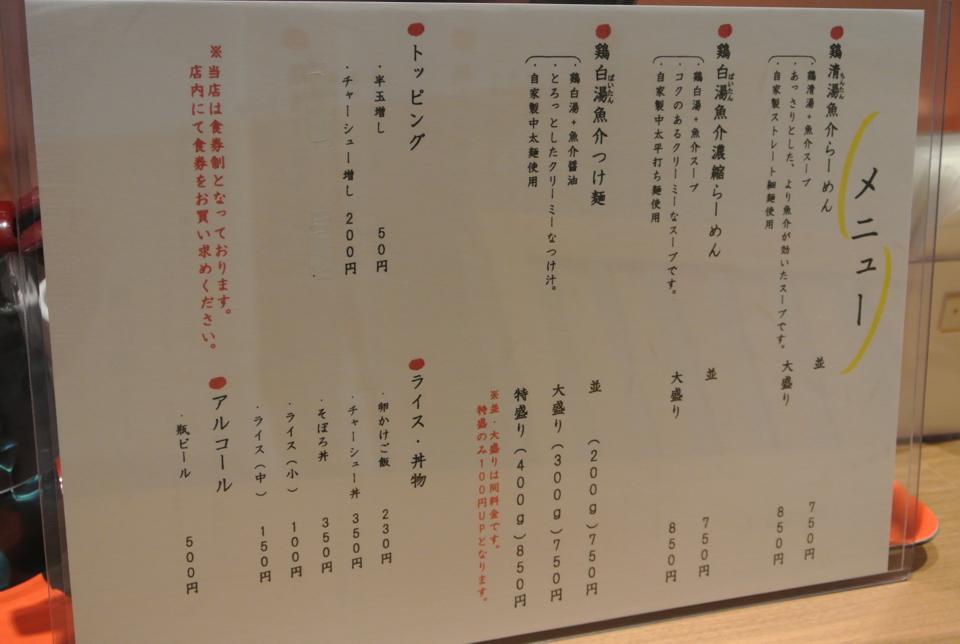 メニュー
●鶏清湯魚介らーめん
ちんたん
・鶏清湯+魚介スープ
・あっさりとした、より魚介が効いたスープです。
・自家製ストレート細麺使用
並 750円
大盛り 850円
●鶏白湯魚介濃縮らーめん
ぱいたん
・鶏白湯+魚介スープ
・コクのあるクリーミーなスープです。
・自家製中太平打ち麺使用
並 750円
大盛り 850円
●鶏白湯魚介つけ麺
ぱいたん
・鶏白湯+魚介醤油
・とろっとしたクリーミーなつけ汁。
・自家製中太麺使用
並 (200g)750円
大盛り(300g)750円
特盛り(400g)850円
※並・大盛りは同料金です。
特盛のみ100円UPとなります。
●トッピング
・半玉増し 50円
・チャーシュー増し 200円
●ライス・丼物
・卵かけご飯 230円
・チャーシュー丼 350円
・そぼろ丼 350円
・ライス(小) 100円
・ライス(中) 150円
●アルコール
・瓶ビール 500円
※当店は食券制となっております。
店内にて食券をお買い求めください。